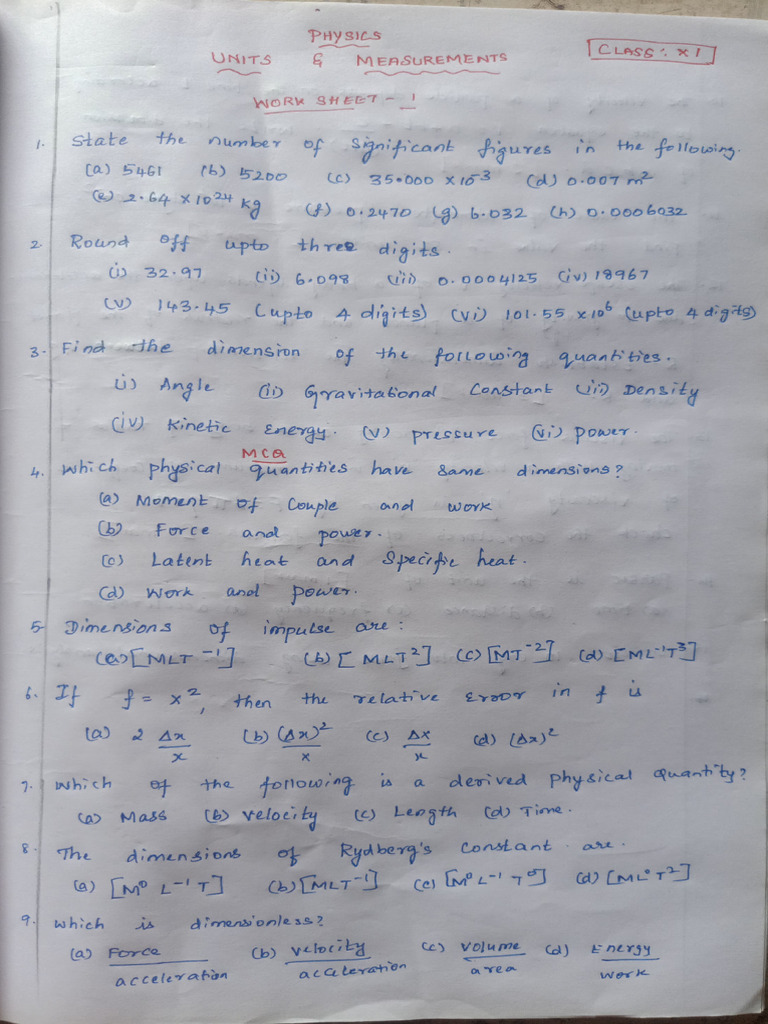 PHYSICS
UNITS & MEASUREMENTS
CLASS: XI
WORK SHEET - 1
1. State the number of significant figures in the following.
(a) 5461 (b) 5200 (c) 35.000 × 10⁻³ (d) 0.007 m²
(e) 2.64 × 10²⁴ kg (f) 0.2470 (g) 6.032 (h) 0.0006032
2. Round off upto three digits.
(i) 32.97 (ii) 6.098 (iii) 0.0004125 (iv) 18967
(v) 143.45 (upto 4 digits) (vi) 101.55 × 10⁶ (upto 4 digits)
3. Find the dimension of the following quantities.
(i) Angle (ii) Gravitational Constant (iii) Density
(iv) Kinetic Energy. (v) pressure (vi) power.
MCQ
4. Which physical quantities have same dimensions?
(a) Moment of Couple and work
(b) Force and power.
(c) Latent heat and Specific heat.
(d) Work and power.
5. Dimensions of impulse are:
(a) [MLT⁻¹] (b) [MLT²] (c) [MT⁻²] (d) [ML⁻¹T³]
6. If f = x², then the relative Error in f is
(a) 2 Δx/x (b) (Δx)²/x (c) Δx/x (d) (Δx)²
7. Which of the following is a derived physical quantity?
(a) Mass (b) velocity (c) Length (d) Time.
8. The dimensions of Rydberg's Constant are.
(a) [M⁰ L⁻¹ T] (b) [MLT⁻¹] (c) [M⁰ L⁻¹ T⁰] (d) [ML⁰T²]
9. Which is dimensionless?
(a) Force/acceleration (b) velocity/acceleration (c) volume/area (d) Energy/work